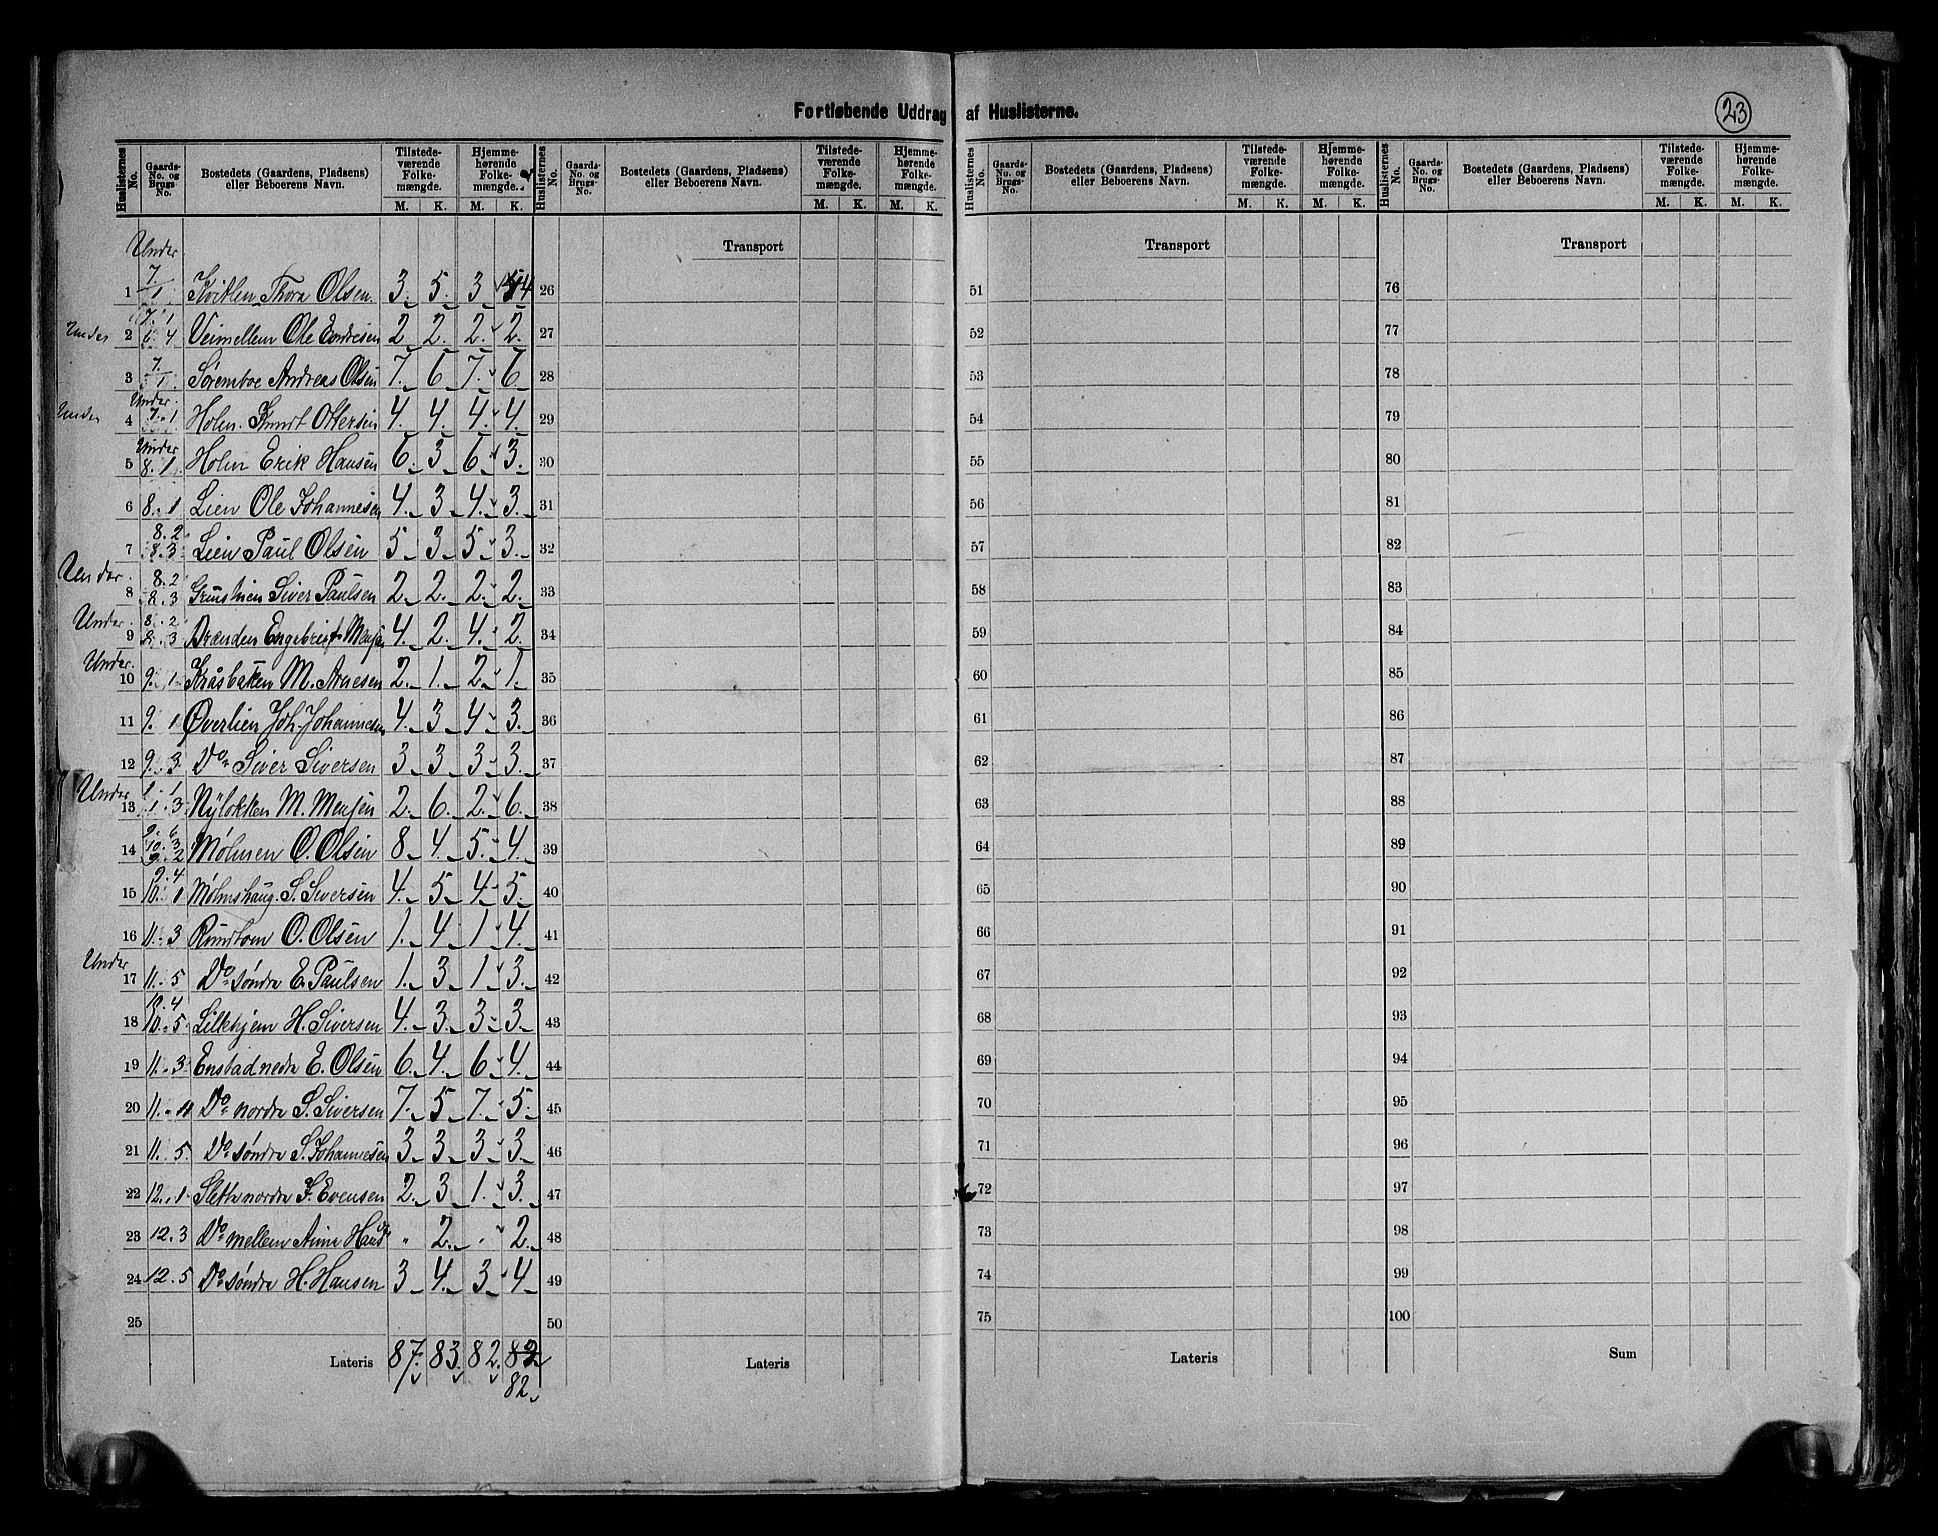 Fortløbende Uddrag af Huslisterne.
23
Huslisternes No. Gaards-No. og Brugs-No. Bostedets (Gaardens, Pladsens) eller Beboerens Navn. Tilstedeværende Folkemængde. M. K. Hjemmehørende Folkemængde. M. K.
Huslisternes No. Gaards-No. og Brugs-No. Bostedets (Gaardens, Pladsens) eller Beboerens Navn. Tilstedeværende Folkemængde. M. K. Hjemmehørende Folkemængde. M. K.
Huslisternes No. Gaards-No. og Brugs-No. Bostedets (Gaardens, Pladsens) eller Beboerens Navn. Tilstedeværende Folkemængde. M. K. Hjemmehørende Folkemængde. M. K.
Huslisternes No. Gaards-No. og Brugs-No. Bostedets (Gaardens, Pladsens) eller Beboerens Navn. Tilstedeværende Folkemængde. M. K. Hjemmehørende Folkemængde. M. K.
Under Transport Transport Transport
1 7. 1 Kvitlen Thora Olsen. 3. 5. 3 4 26 51 76
Under 2 7. 1 6. 4 Veimellem Ole Endresen 2 2. 2. 2. 27 52 77
3 7. 1 Søremboe Andreas Olsen 7. 6 7. 6. 28 53 78
Under 4 Under 7. 1 Holm. Knudt Ottersen 4. 4. 4. 4. 29 54 79
5 Under 8. 1 Holm Erik Hansen 6. 3. 6. 3. 30 55 80
6 8. 1 Lien Ole Johannesen 4. 3 4. 3. 31 56 81
7 8. 2 8. 3 Lien Paul Olsen 5 3. 5. 3. 32 57 82
Under. 8 8. 2 8. 3 Siver Paulsen 2. 2. 2. 2. 33 58 83
Under. 9 8. 2 8. 3 Brænden Engebrect 4. 2. 4. 2. 34 59 84
Under. 10 9. 1 Kråsbaken M. Arnesen 2. 1. 2. 1. 35 60 85
11 9. 1 Øverlien Joh. Johannesen 4. 3. 4. 3. 36 61 86
12 9. 3. Do Siver Siversen 3 3. 3. 3. 37 62 87
Under 13 1. 1 1. 3 Nyløkken M. 2. 6. 2. 6. 38 63 88
14 9. 6 10. 3 9. 2 Mølmen O. Olsen 8. 4. 5. 4. 39 64 89
15 9. 4 10. 1 Mølmshaug. S. Siversen 4. 5. 4. 5. 40 65 90
16 11. 3 Rundtom O. Olsen 1. 4. 1. 4. 41 66 91
Under 17 11. 5 Do søndre E. Paulsen 1. 3. 1. 3. 42 67 92
18 10. 4 10. 5 Lillehjem H. Siversen 4. 3. 3. 3. 43 68 93
19 11. 3 Enstad nedre E. Olsen 6. 4. 6. 4. 44 69 94
20 11. Do nordre S. Siversen 7. 5. 7. 5. 45 70 95
21 11. 5. Do søndre S. Johannesen 3. 3. 3. 3. 46 71 96
22 12. 1 Slette nordre J. Evensen 2. 3 1. 3. 47 72 97
23 12. 3 Do mellem " 2. . 2. 48 73 98
24 12. 5 Do søndre H. Hansen 3. 4. 3. 4 49 74 99
25 50 75 100
Lateris 87. 83. 82. Lateris Lateris Sum
82.